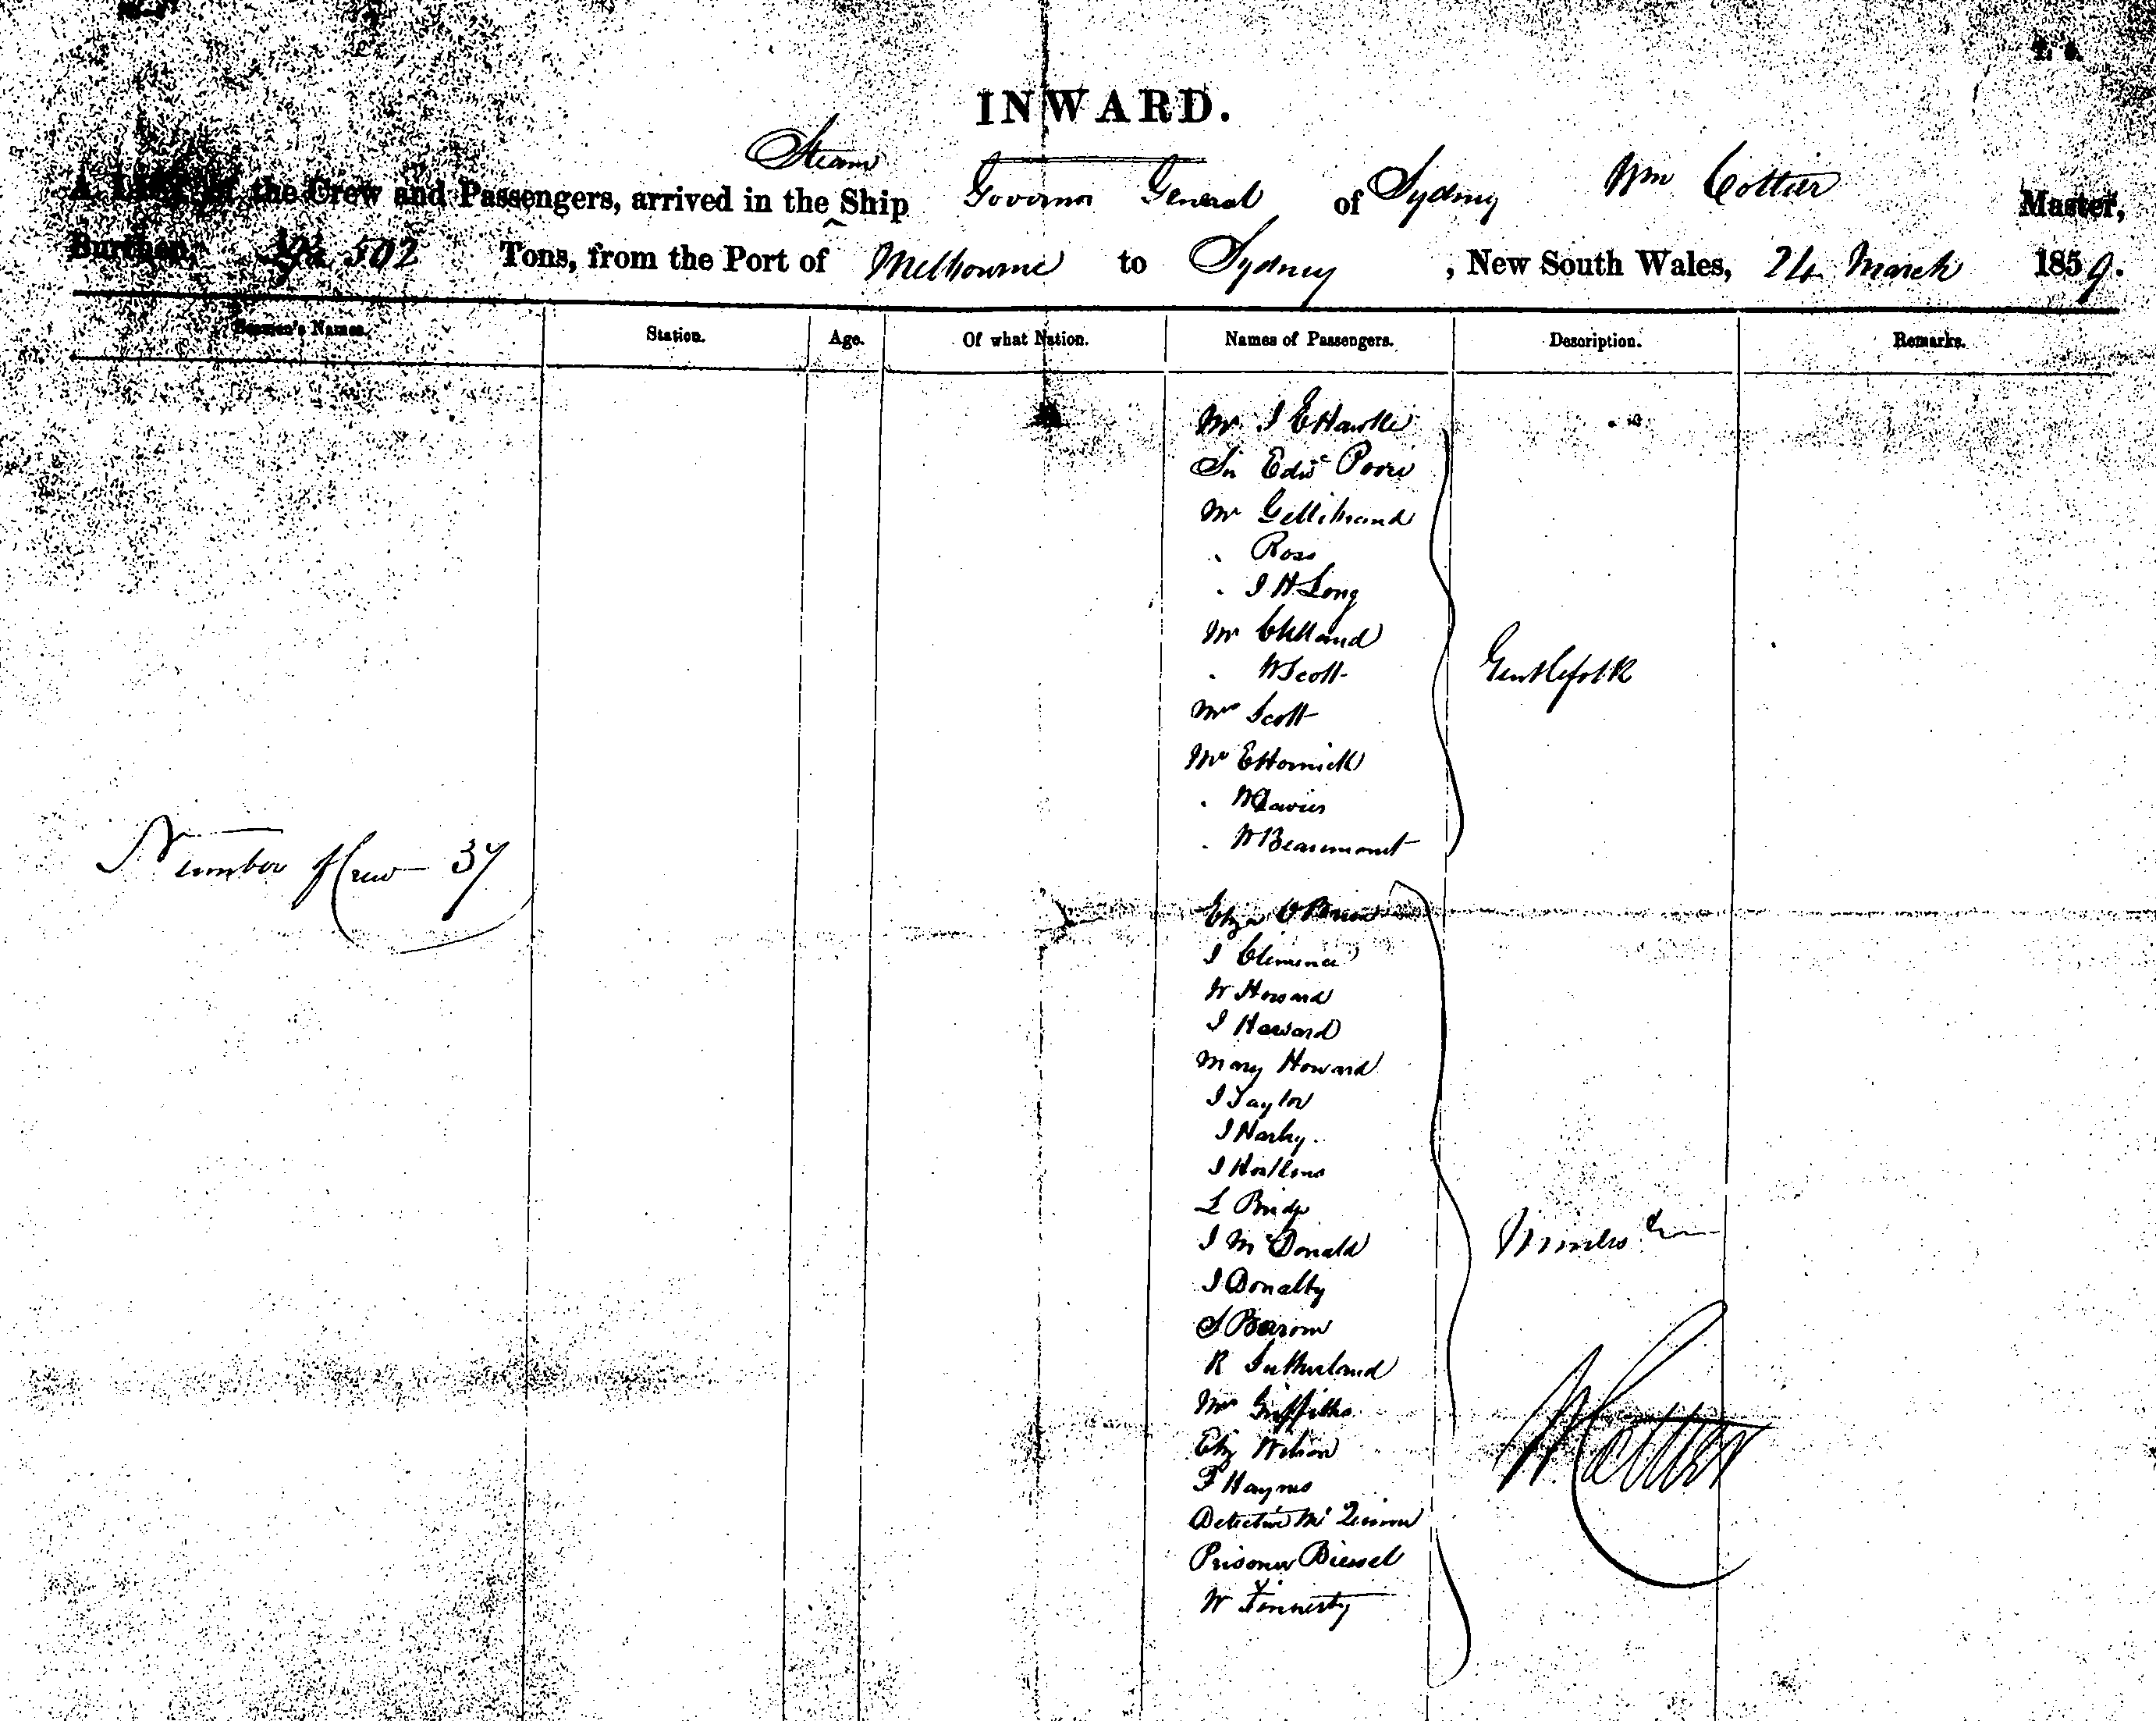 INWARD.
Steam
A List of the Crew and Passengers, arrived in the Ship Governor General of Sydney Wm Cottier Master,
Burthen, 502 Tons, from the Port of Melbourne to Sydney, New South Wales, 24 March 1859.
Seamen's Names. Station. Age. Of what Nation. Names of Passengers. Description. Remarks.
Mr J E Hawke
Sir Edwd Poore
Mr Gellibrand
" Ross
" J H Long
Mr Clelland
" W Scott
Gentlefolk
Mrs Scott
Mr
" W Davies
" W Beaumont
Number of Crew 37
Eliza O'Brien
J Clemence
W Howard
J Howard
Mary Howard
J Taylor
J
J
L Bridge
J McDonald
Miners &c
J Donalty
S Barrow
R Sutherland
Mrs Griffiths
Eliz Wilson
W Cottier
F Haynes
Detective Mc
Prisoner
W Finnerty